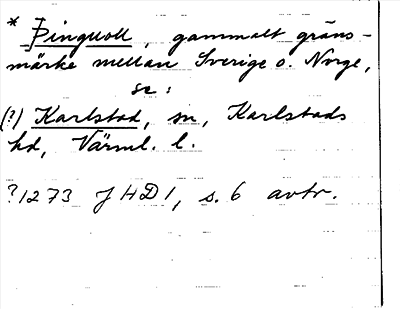 * Þinguoll, gammalt gräns-
märke mellan Sverige o. Norge,
se:
(?) Karlstad, sn, Karlstads
hd, Värml. l.
?1273 JHD1, s. 6 avtr.